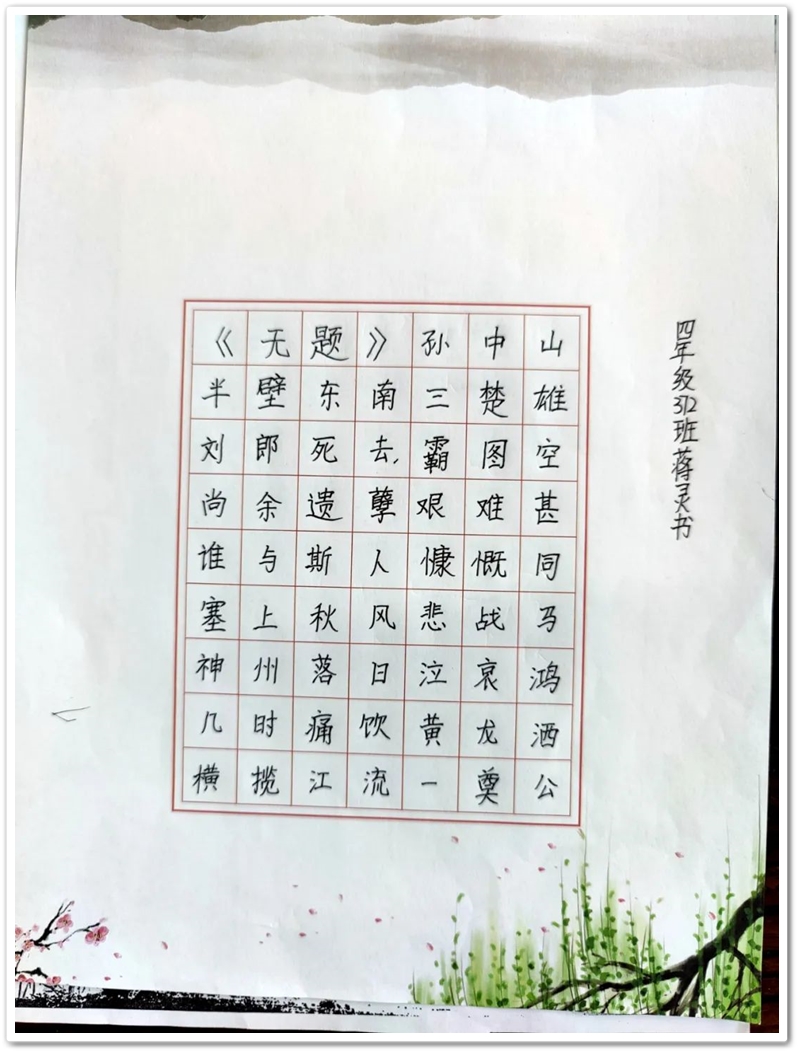 《无题》孙中山
半壁东南三楚雄
刘郎死去,霸图空
尚余遗孽艰难甚
谁与斯人慷慨同
塞上秋风悲战马
神州落日泣哀鸿
几时痛饮黄龙酒
横揽江流一奠公
四年级312班蒋灵书